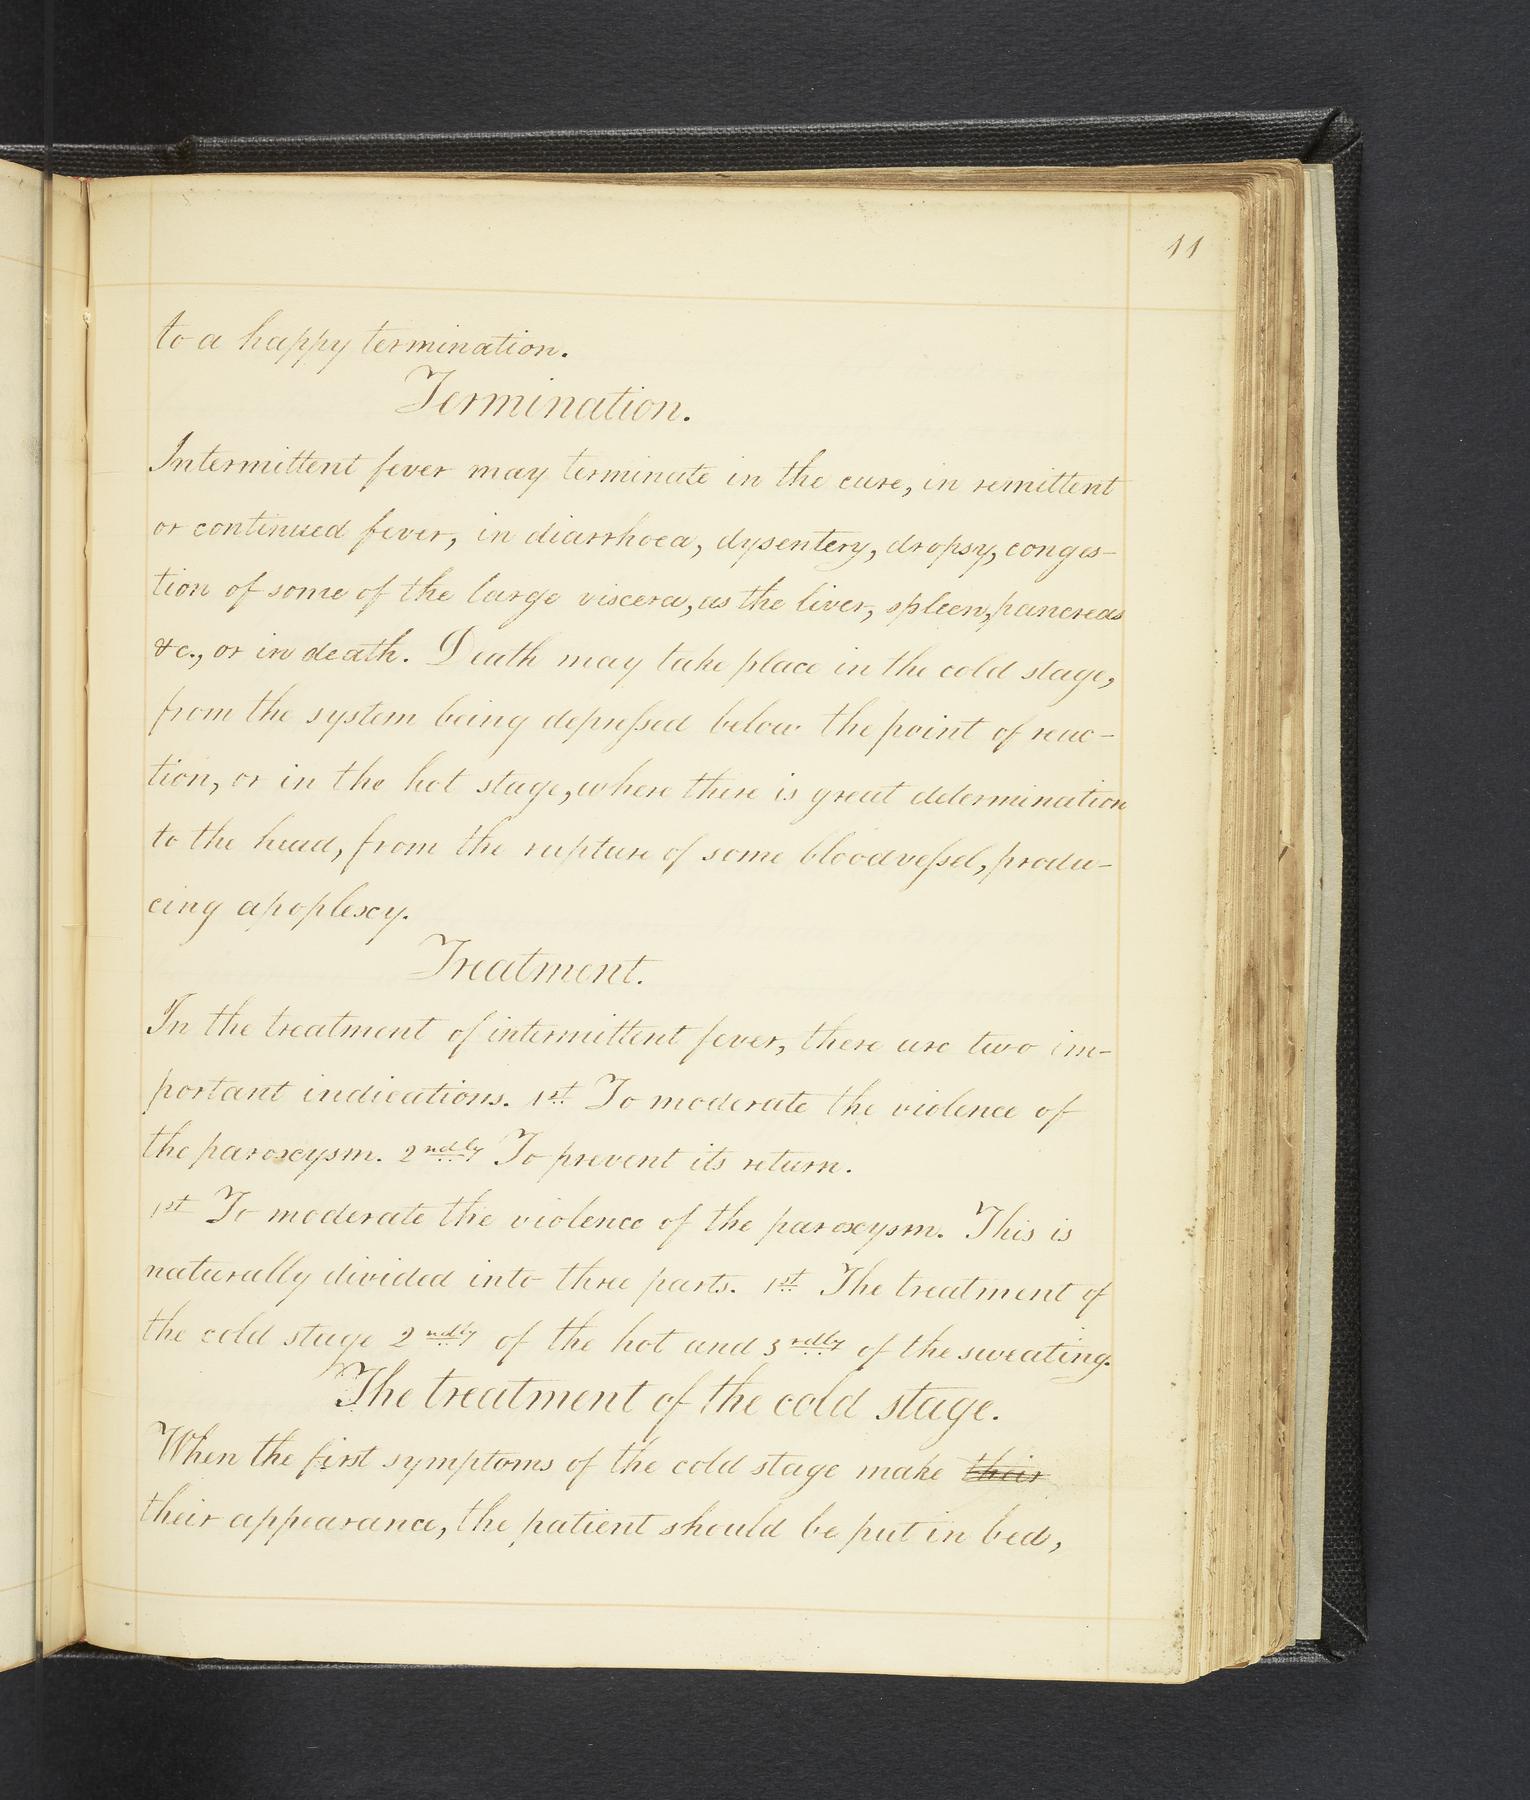 11
to a happy termination.
Termination.
Intermittent fever may terminate in the cure, in remittent
or continued fever, in diarrhoea, dysentery, dropsy, conges-
tion of some of the large viscera, as the liver, spleen, pancreas
&c., or in death. Death may take place in the cold stage,
from the system being depreſsed below the point of reac-
tion, or in the hot stage, where there is great determination
to the head, from the rupture of some bloodveſsel, produ-
cing apoplexy.
Treatment.
In the treatment of intermittent fever, there are two im-
portant indications. 1st To moderate the violence of
the paroxysm. 2ndly To prevent its return.
1st To moderate the violence of the paroxysm. This is
naturally divided into three parts. 1st The treatment of
the cold stage 2ndly of the hot and 3rdly of the sweating.
The treatment of the cold stage.
When the first symptoms of the cold stage make their
their appearance, the patient should be put in bed,